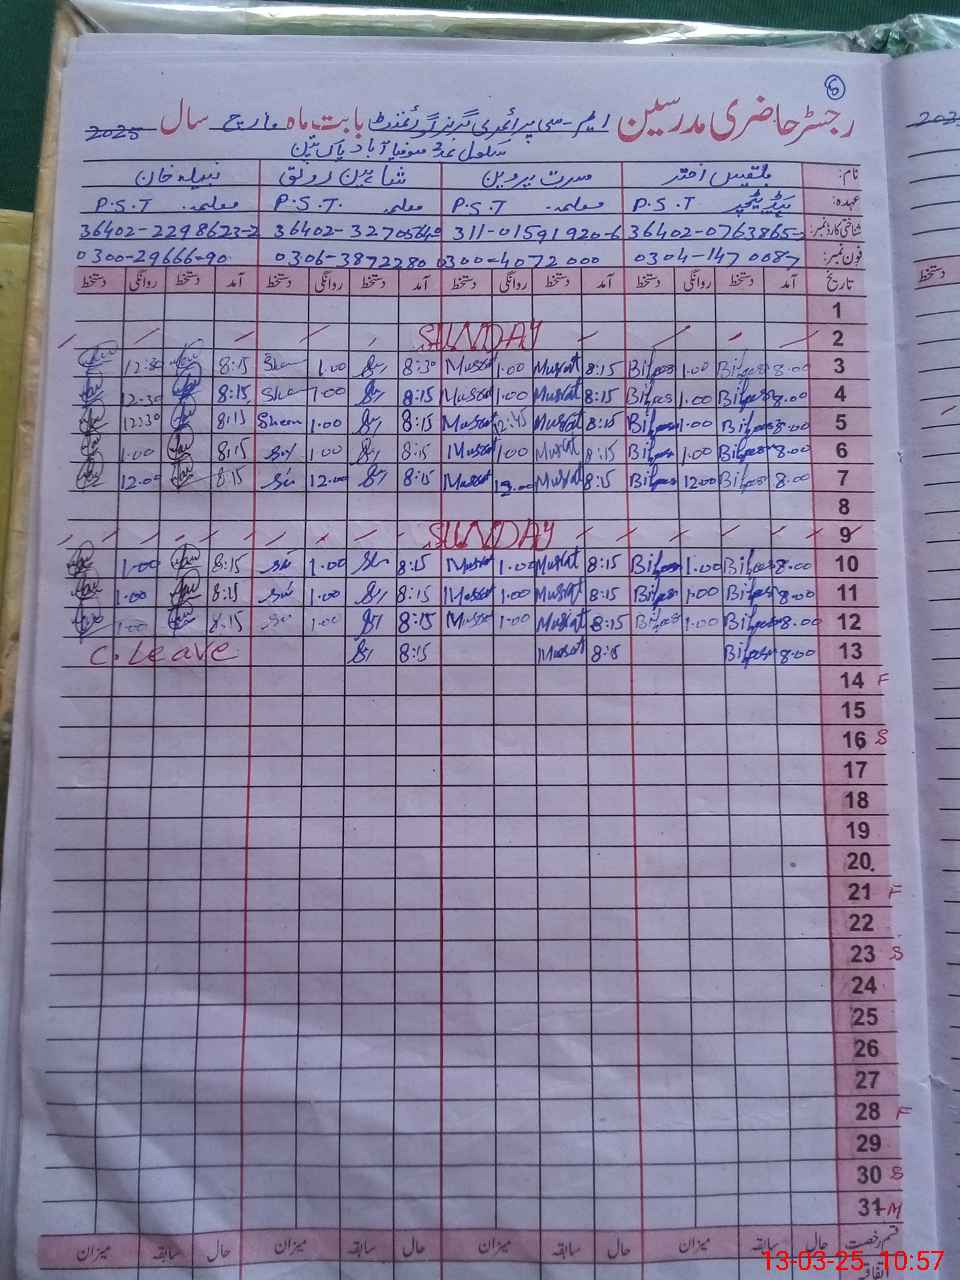 6
رجسٹر حاضری مدرسین ایم-سی پرائمری گرلز گورنمنٹ بابت ماہ مارچ سال 2025
سکول نمبر 2 صوفیا آباد پاکپتن
نام: بلقیس اختر مسرت پروین شاہین رونق نبیلہ خان
عہدہ: ہیڈ ٹیچر P.S.T معلمہ P.S.T معلمہ P.S.T. معلمہ P.S.T
شناختی کارڈ نمبر: 36402-0763865- 311-01591920-6 36402-3270564 36402-2298623-2
فون نمبر: 0304-147 0087 0300-4072000 0306-3872280 0300-29666-90
تاریخ آمد دستخط روانگی دستخط آمد دستخط روانگی دستخط آمد دستخط روانگی دستخط آمد دستخط روانگی دستخط
1
2 SUNDAY
3 8.00 Bilqas 1.00 Bilqas 8:15 Musrat 1.00 Musrat 8:30 1.00 Sha 8:15 12:30
4 8.00 Bilqas 1.00 Bilqas 8:15 Musrat 1.00 Musrat 8:15 1.00 Sha 8:15 12.30
5 8.00 Bilqas 1.00 Bilqas 8:15 Musrat 12:45 Musrat 8:15 1.00 Sheen 8:15 12:30
6 8.00 Bilqas 1.00 Bilqas 8:15 Musrat 1.00 Musrat 8:15 1.00 8:15 1.00
7 8.00 Bilqas 12.00 Bilqas 8:15 Musrat 12.00 Musrat 8:15 12.00 8:15 12.00
8
9 SUNDAY
10 8.00 Bilqas 1.00 Bilqas 8:15 Musrat 1.00 Musrat 8:15 1.00 8:15 1.00
11 8.00 Bilqas 1.00 Bilqas 8:15 Musrat 1.00 Musrat 8:15 1.00 8:15 1.00
12 8.00 Bilqas 1.00 Bilqas 8:15 Musrat 1.00 Musrat 8:15 1.00 8:15 1.00
13 8.00 Bilqas 8:15 Musrat 8:15 C. Leave
14 F
15
16 S
17
18
19
20
21 F
22
23 S
24
25
26
27
28 F
29
30 S
31 M
قسم رخصت حال سابقہ میزان حال سابقہ میزان حال سابقہ میزان حال سابقہ میزان
13-03-25 10:57